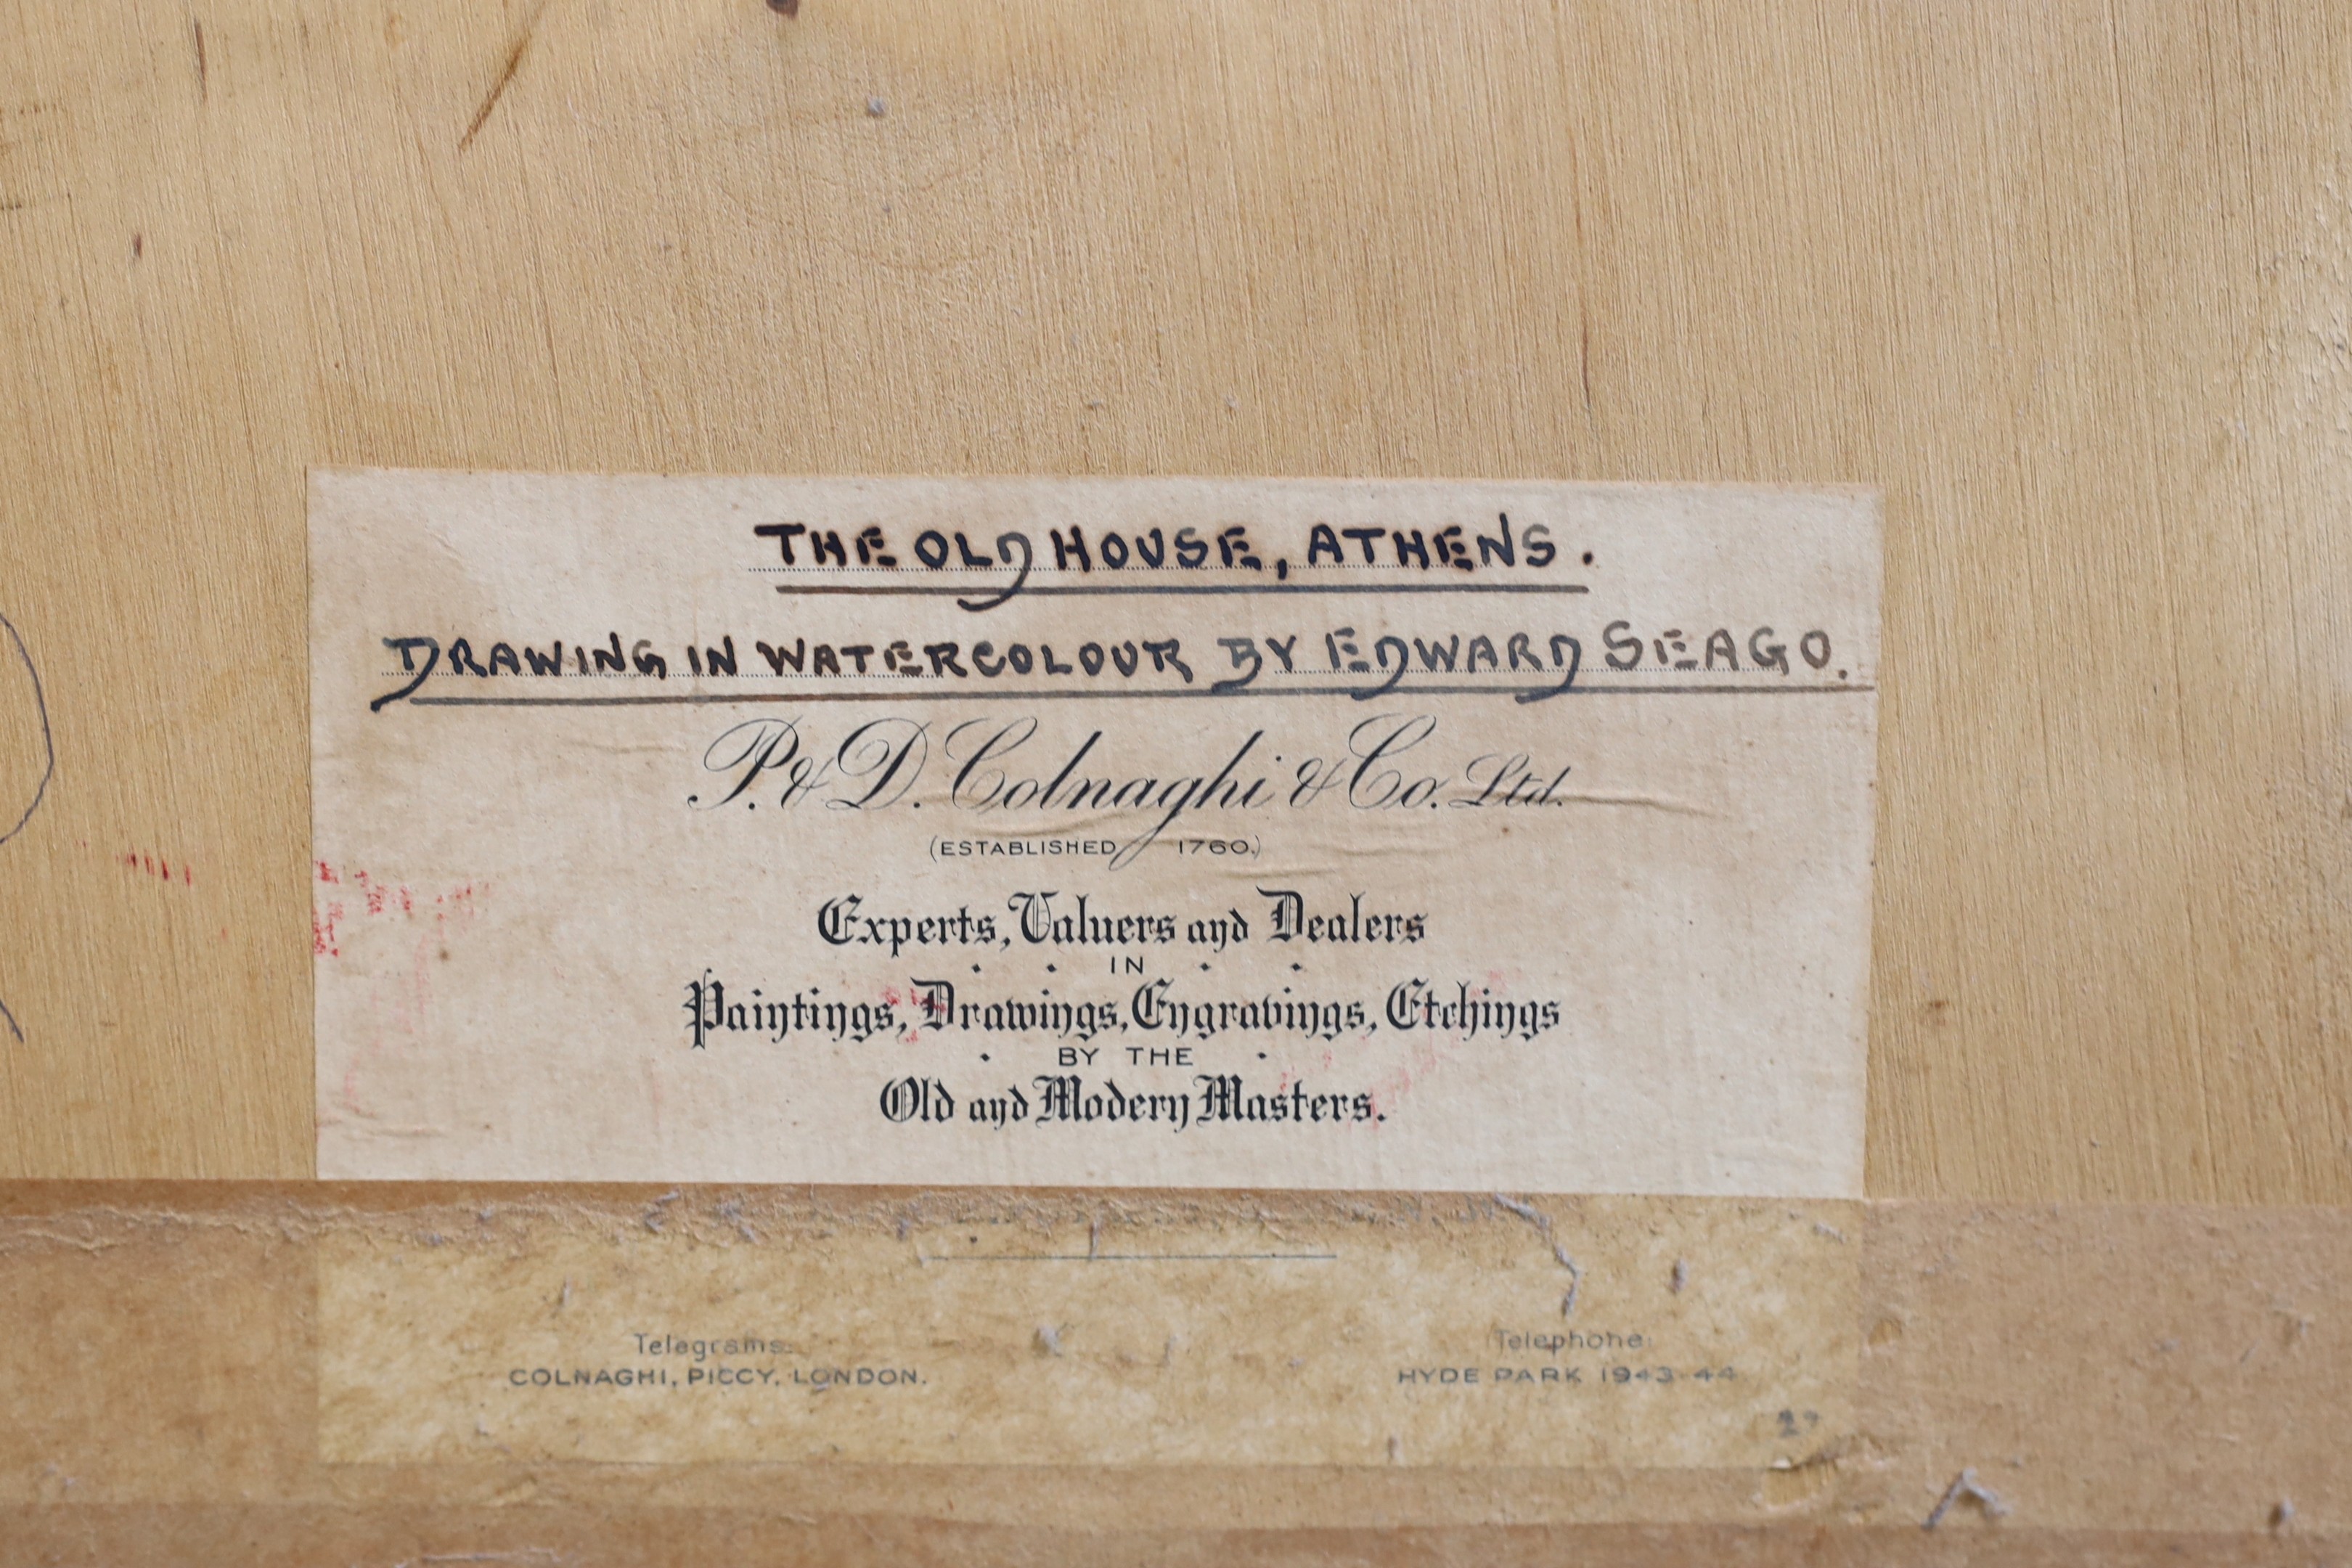 THE OLD HOUSE, ATHENS.
DRAWING IN WATERCOLOUR BY EDWARD SEAGO.
P. & D. Colnaghi & Co. Ltd.
(ESTABLISHED 1760.)
Experts, Valuers and Dealers
IN
Paintings, Drawings, Engravings, Etchings
BY THE
Old and Modern Masters.
Telegrams:
COLNAGHI, PICCY, LONDON.
Telephone
HYDE PARK 1943-44